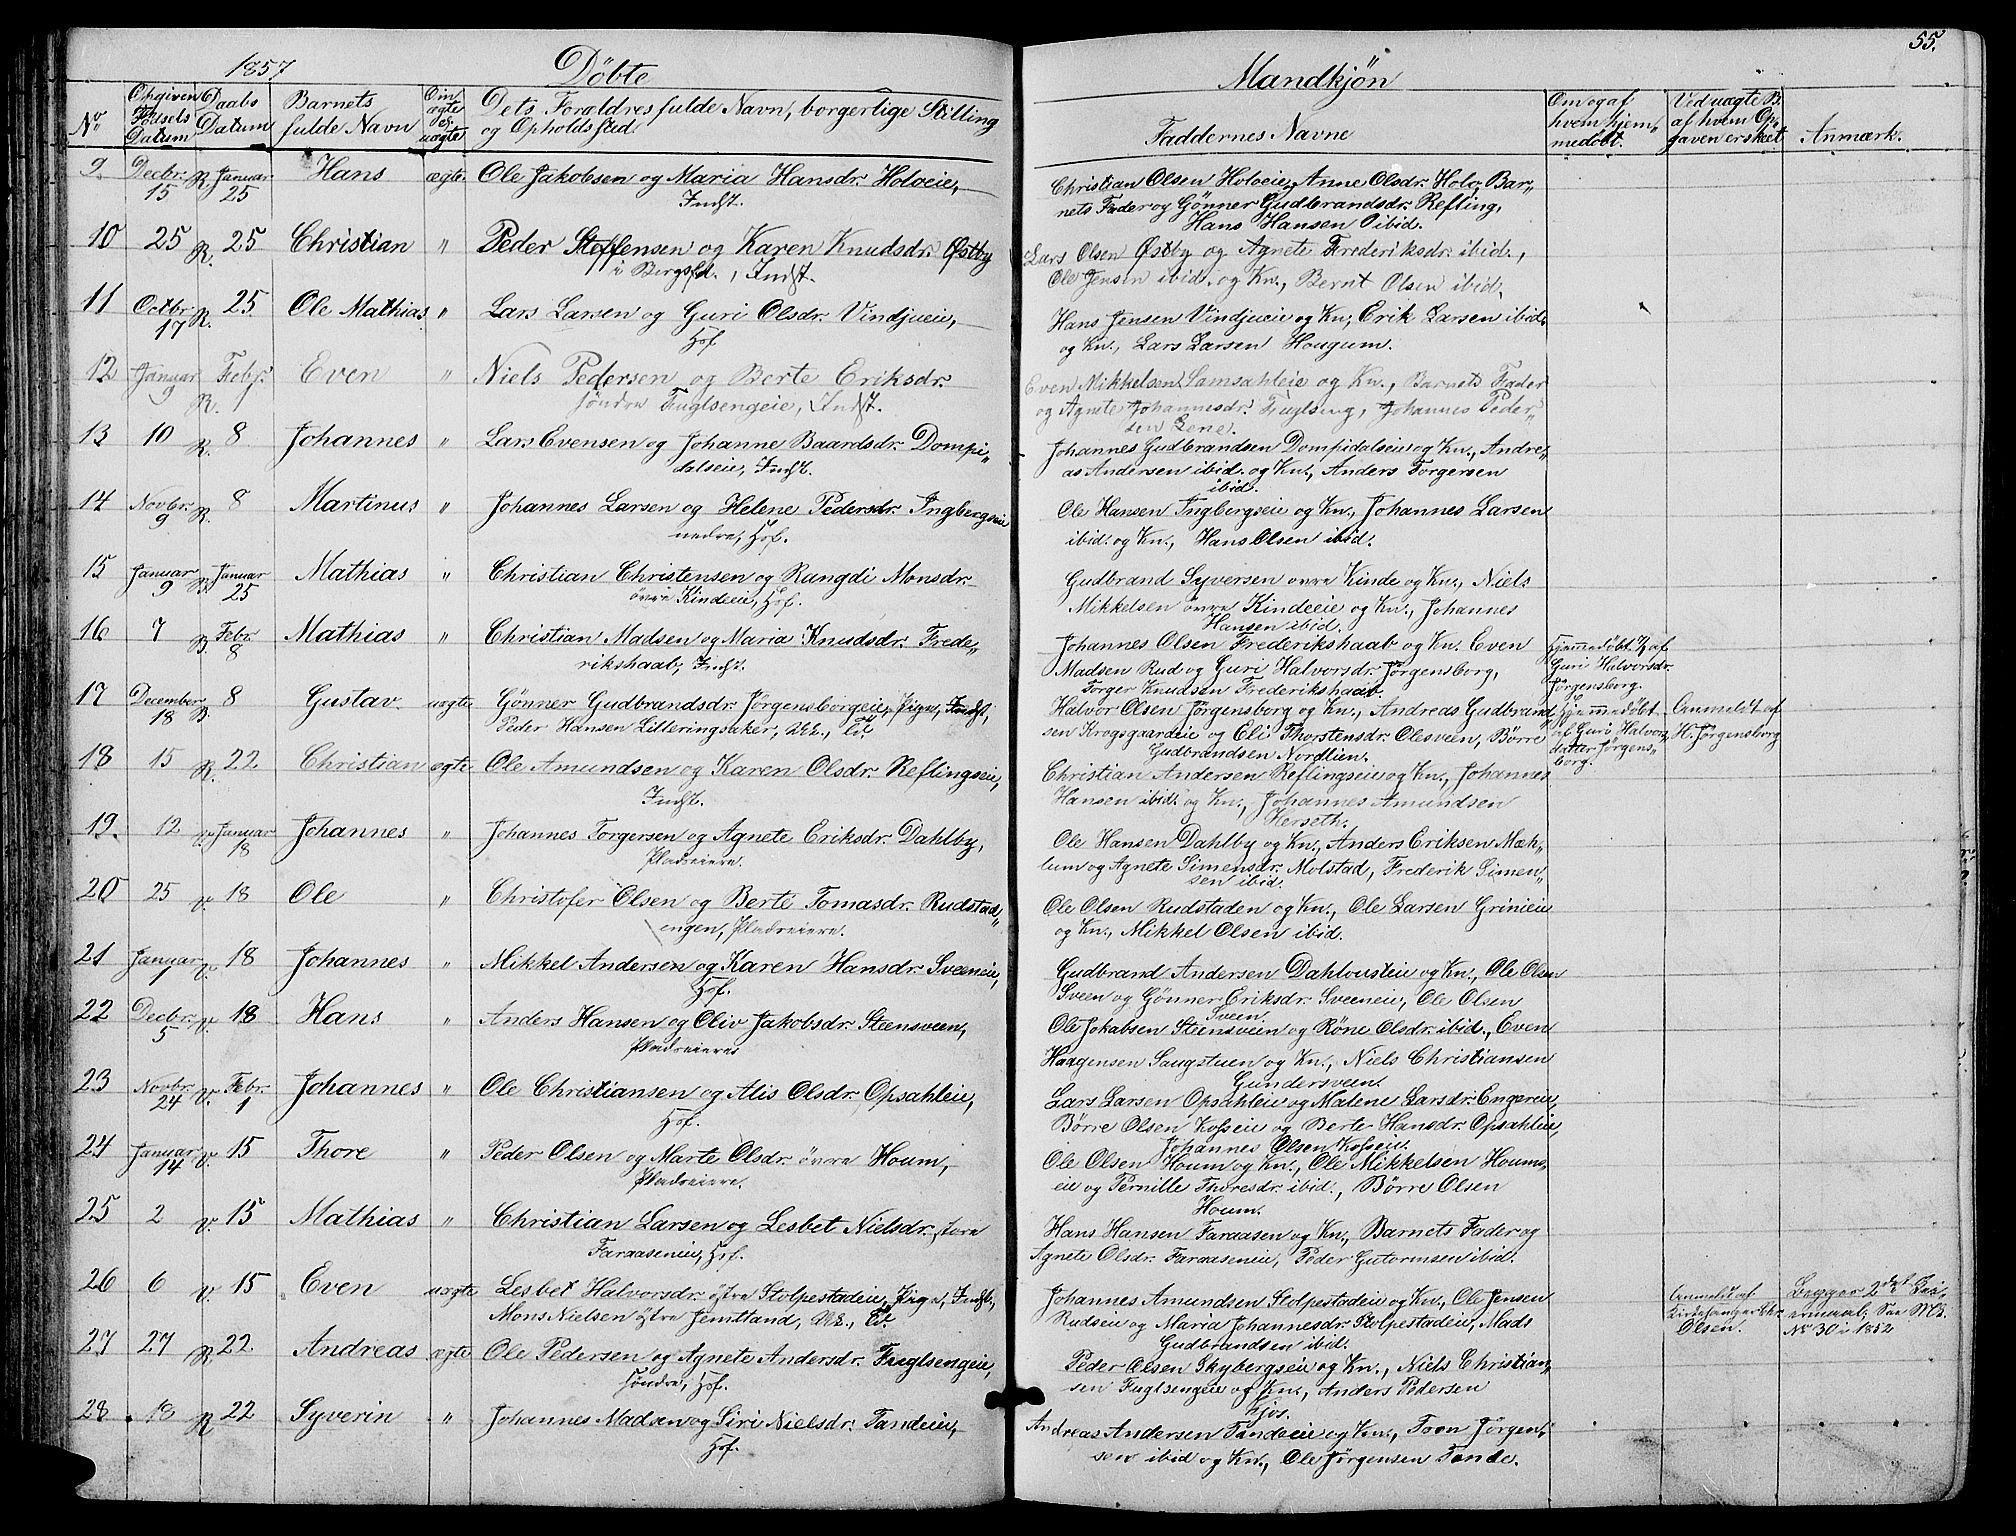 55.
1857 Döbte Mandkjön
No. Opgiven Födsels Datum Daabs Datum Barnets fulde Navn Om ægte el. uægte Dets Forældres fulde Navn, borgerlige Stilling og Opholdsted
Faddernes Navne Om og af hvem hjemmedöbt. Ved uægte B. af hvem Opgaven er skeet Anmærk.
9. Decbr. 15 R. Januar 25 Hans ægte. Ole Jakobsen og Maria Hansdr. Holoeie,
Indst.
Christian Olsen Holoeie, Anne Olsdr. Holo, Bar„
nets Fader og Gönner Gudbrandsdr. Refling,
Hans Hansen ibid.
10 25 R. 25 Christian „ Peder Steffensen og Karen Knudsdr. Østby
i Bergsed., Indst.
Lars Olsen Østby og Agnete Frederiksdr. ibid.,
Ole Jensen ibid. og Kn., Bernt Olsen ibid.
11 Octbr. 17 R. 25 Ole Mathias. „ Lars Larsen og Guri Olsdr. Vindjueie,
Hof.
Hans Jensen Vindjueie og Kn, Erik Larsen ibid.
og Kn., Lars Larsen Hougum.
12 Januar 9 R. Febr. 1 Even „ Niels Pedersen og Berte Eriksdr.
söndre Fuglsengeie, Indst.
Even Mikkelsen Samsahleie og Kn., Barnets Fader
og Agnete Johannesdr. Fuglseng, Johannes Peder„
sen Lene.
13 10 R. 8 Johannes „ Lars Evensen og Johanne Baardsdr. Dompi„
dalseie, Indst.
Johannes Gudbrandsen Dompidalseie og Kn., Andre„
as Andersen ibid. og Kn., Anders Torgersen
ibid.
14 Novbr. 9 R. 8 Martinus „ Johannes Larsen og Helene Pedersdr. Ingbergseie
nedre, Hof.
Ole Hansen Ingbergseie og Kn., Johannes Larsen
ibid. og Kn., Hans Olsen ibid.
15 Januar 9 B. Januar 25 Mathias „ Christian Christensen og Rangdi Monsdr.
övre Kindeeie, Hof.
Gudbrand Syversen övre Kinde og Kn., Niels
Mikkelsen övre Kindeeie og Kn., Johannes
Hansen ibid.
16 7 B. Febr. 8 Mathias „ Christian Madsen og Maria Knudsdr. Frede„
rikshaab, Indst.
Johannes Olsen Frederikshaab og Kn. Even
Madsen Rud og Guri Halvorsdr. Jörgensborg,
Torger Knudsen Frederikshaab.
Hjemmedöbt af
Guri Halvorsdr.
Jörgensborg.
17 December 18 B. 8 Gustav uægte. Gönner Gudbrandsdr. Jörgensborgeie, Pige, Indst.,
Peder Hansen Lilleringsaker,
Halvor Olsen Jörgensborg og Kn., Andreas Gudbrand„
sen Krogsgaardeie og Eli Thorstensdr. Olesveen, Börre
Gudbrandsen Nordlien.
Hjemmedöbt
af Guri Halvors„
datter Jörgens„
borg.
Anmeldt af
H. Jörgensborg
18 15 R. 22 Christian ægte. Ole Amundsen og Karen Olsdr. Reflingseie,
Indst.
Christian Andersen Reflingseie og Kn., Johannes
Hansen ibid. og Kn., Johannes Amundsen
Kerseth.
19. 12 V. Januar 18 Johannes „ Johannes Torgersen og Agnete Eriksdr. Dahlby,
Pladseiere.
Ole Hansen Dahlby og Kn., Anders Eriksen Mæh„
lum og Agnete Simensdr. Molstad, Frederik Simen„
sen ibid.
20 25 V. 18 Ole „ Christofer Olsen og Berte Tomasdr. Rudstad„
engen, Pladseiere.
Ole Olsen Rudstaden og Kn., Ole Larsen Grinieie
og Kn., Mikkel Olsen ibid.
21 Januar 1 V. 18 Johannes „ Mikkel Andersen og Karen Hansdr. Sveeneie,
Hof.
Gudbrand Andersen Dahlousteie og Kn., Ole Olsen
Sveen og Gönner Eriksdr. Sveeneie, Ole Olsen
Sveen.
22 Decbr. 5 V. 18 Hans „ Anders Hansen og Oliv Jakobsdr. Steensveen,
Pladseiere
Ole Jokabsen Steensveen og Röne Olsdr. ibid., Even
Haagensen Saugstuen og Kn., Niels Christiansen
Gundersveen.
23 Novbr. 24 V. Febr. 1 Johannes „ Ole Christiansen og Alis Olsdr. Opsahleie,
Hof.
Lars Larsen Opsahleie og Malene Larsdr. Engereie,
Börre Olsen Kosseie og Berte Hansdr. Opsahleie,
Johannes Olsen Kosseie.
24 Januar 14 V. 15 Thore „ Peder Olsen og Marte Olsdr. övre Houm,
Pladseiere.
Ole Olsen Houm og Kn., Ole Mikkelsen Houms„
eie og Pernille Thoresdr. ibid., Börre Olsen
Houm.
25 2 V. 15 Mathias „ Christian Larsen og Lesbet Nielsdr. store
Faraaseneie, Hof.
Hans Hansen Faraasen og Kn., Barnets Fader og
Agnete Olsdr. Faraaseneie, Peder Gutormsen ibid.
26 6 V. 15 Even uægte Lesbet Halvorsdr. östre Stolpestadeie, Pige, Indst.,
Mons Nielsen östre Jemtland,
Johannes Amundsen Stolpestadeie og Kn., Ole Jensen
Rudseie og Maria Johannesdr. Stolpestadeie, Mads
Gudbrandsen ibid.
Anmeldt af
Kirkesanger
Olsen.
Begges 2det Lei„
ermaal. See
No 30 i 1852
27 27 R. 22. Andreas ægte Ole Pedersen og Agnete Andersdr. Fuglsengeie,
söndre, Hof.
Peder Olsen Skybergseie og Kn., Niels Christian„
sen Fuglsengeie og Kn., Anders Pedersen
Kjos.
28 18 R 22 Syverin „ Johannes Madsen og Siri Nielsdr. Tandeeie,
Hof.
Andreas Andersen Tandeeie og Kn., Toon Jörgen„
sen ibid og Kn., Ole Jörgensen Tande.